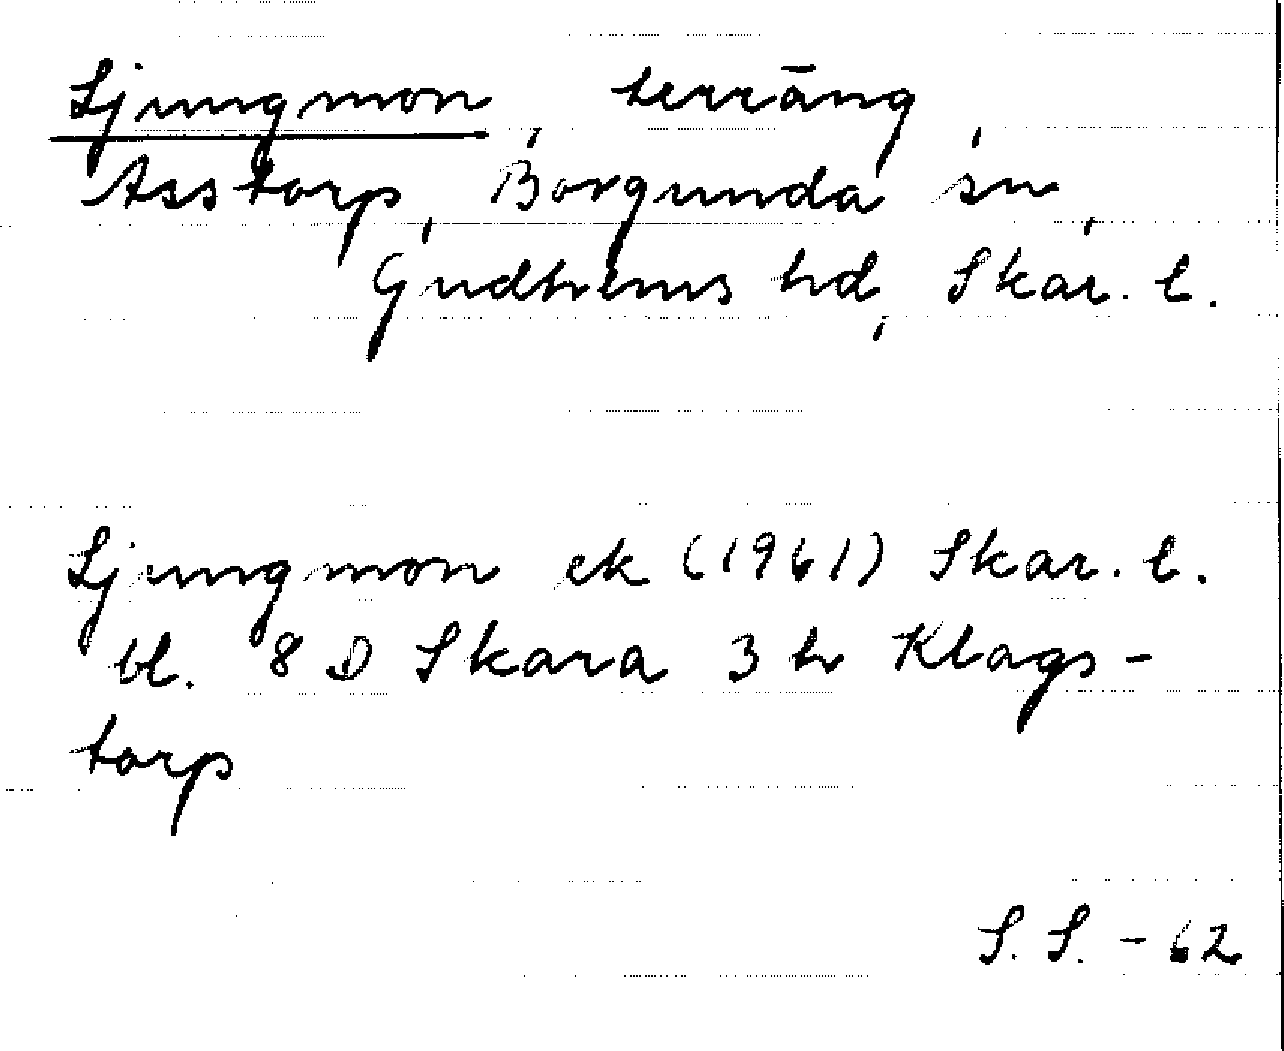 Ljungmon, terräng,
Asstorp, Borgunda sn,
Gudhems hd, Skar. l.
Ljungmon ek (1961) Skar. l.
bl. 8 D Skara 3 h Klags-
torp
S. S. - 62